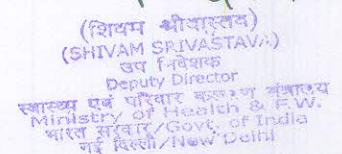 (शिवम श्रीवास्तव)
(SHIVAM SRIVASTAVA)
उप निदेशक
Deputy Director
स्वास्थ्य एवं परिवार कल्याण मंत्रालय
Ministry of Health & F.W.
भारत सरकार/Govt. of India
नई दिल्ली/New Delhi